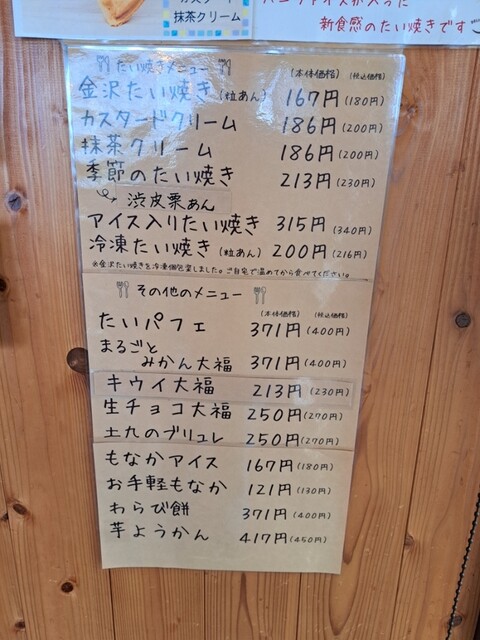 抹茶クリーム
新食感のたい焼きです
たい焼きメニュー (本体価格) (税込価格)
金沢たい焼き (粒あん) 167円 (180円)
カスタードクリーム 186円 (200円)
抹茶クリーム 186円 (200円)
季節のたい焼き 213円 (230円)
渋皮栗あん
アイス入りたい焼き 315円 (340円)
冷凍たい焼き (粒あん) 200円 (216円)
※金沢たい焼きを冷凍個包装しました。ご自宅で温めてから食べてください。
その他のメニュー (本体価格) (税込価格)
たいパフェ 371円 (400円)
まるごと
みかん大福 371円 (400円)
キウイ大福 213円 (230円)
生チョコ大福 250円 (270円)
土九のブリュレ 250円 (270円)
もなかアイス 167円 (180円)
お手軽もなか 121円 (130円)
わらび餅 371円 (400円)
芋ようかん 417円 (450円)